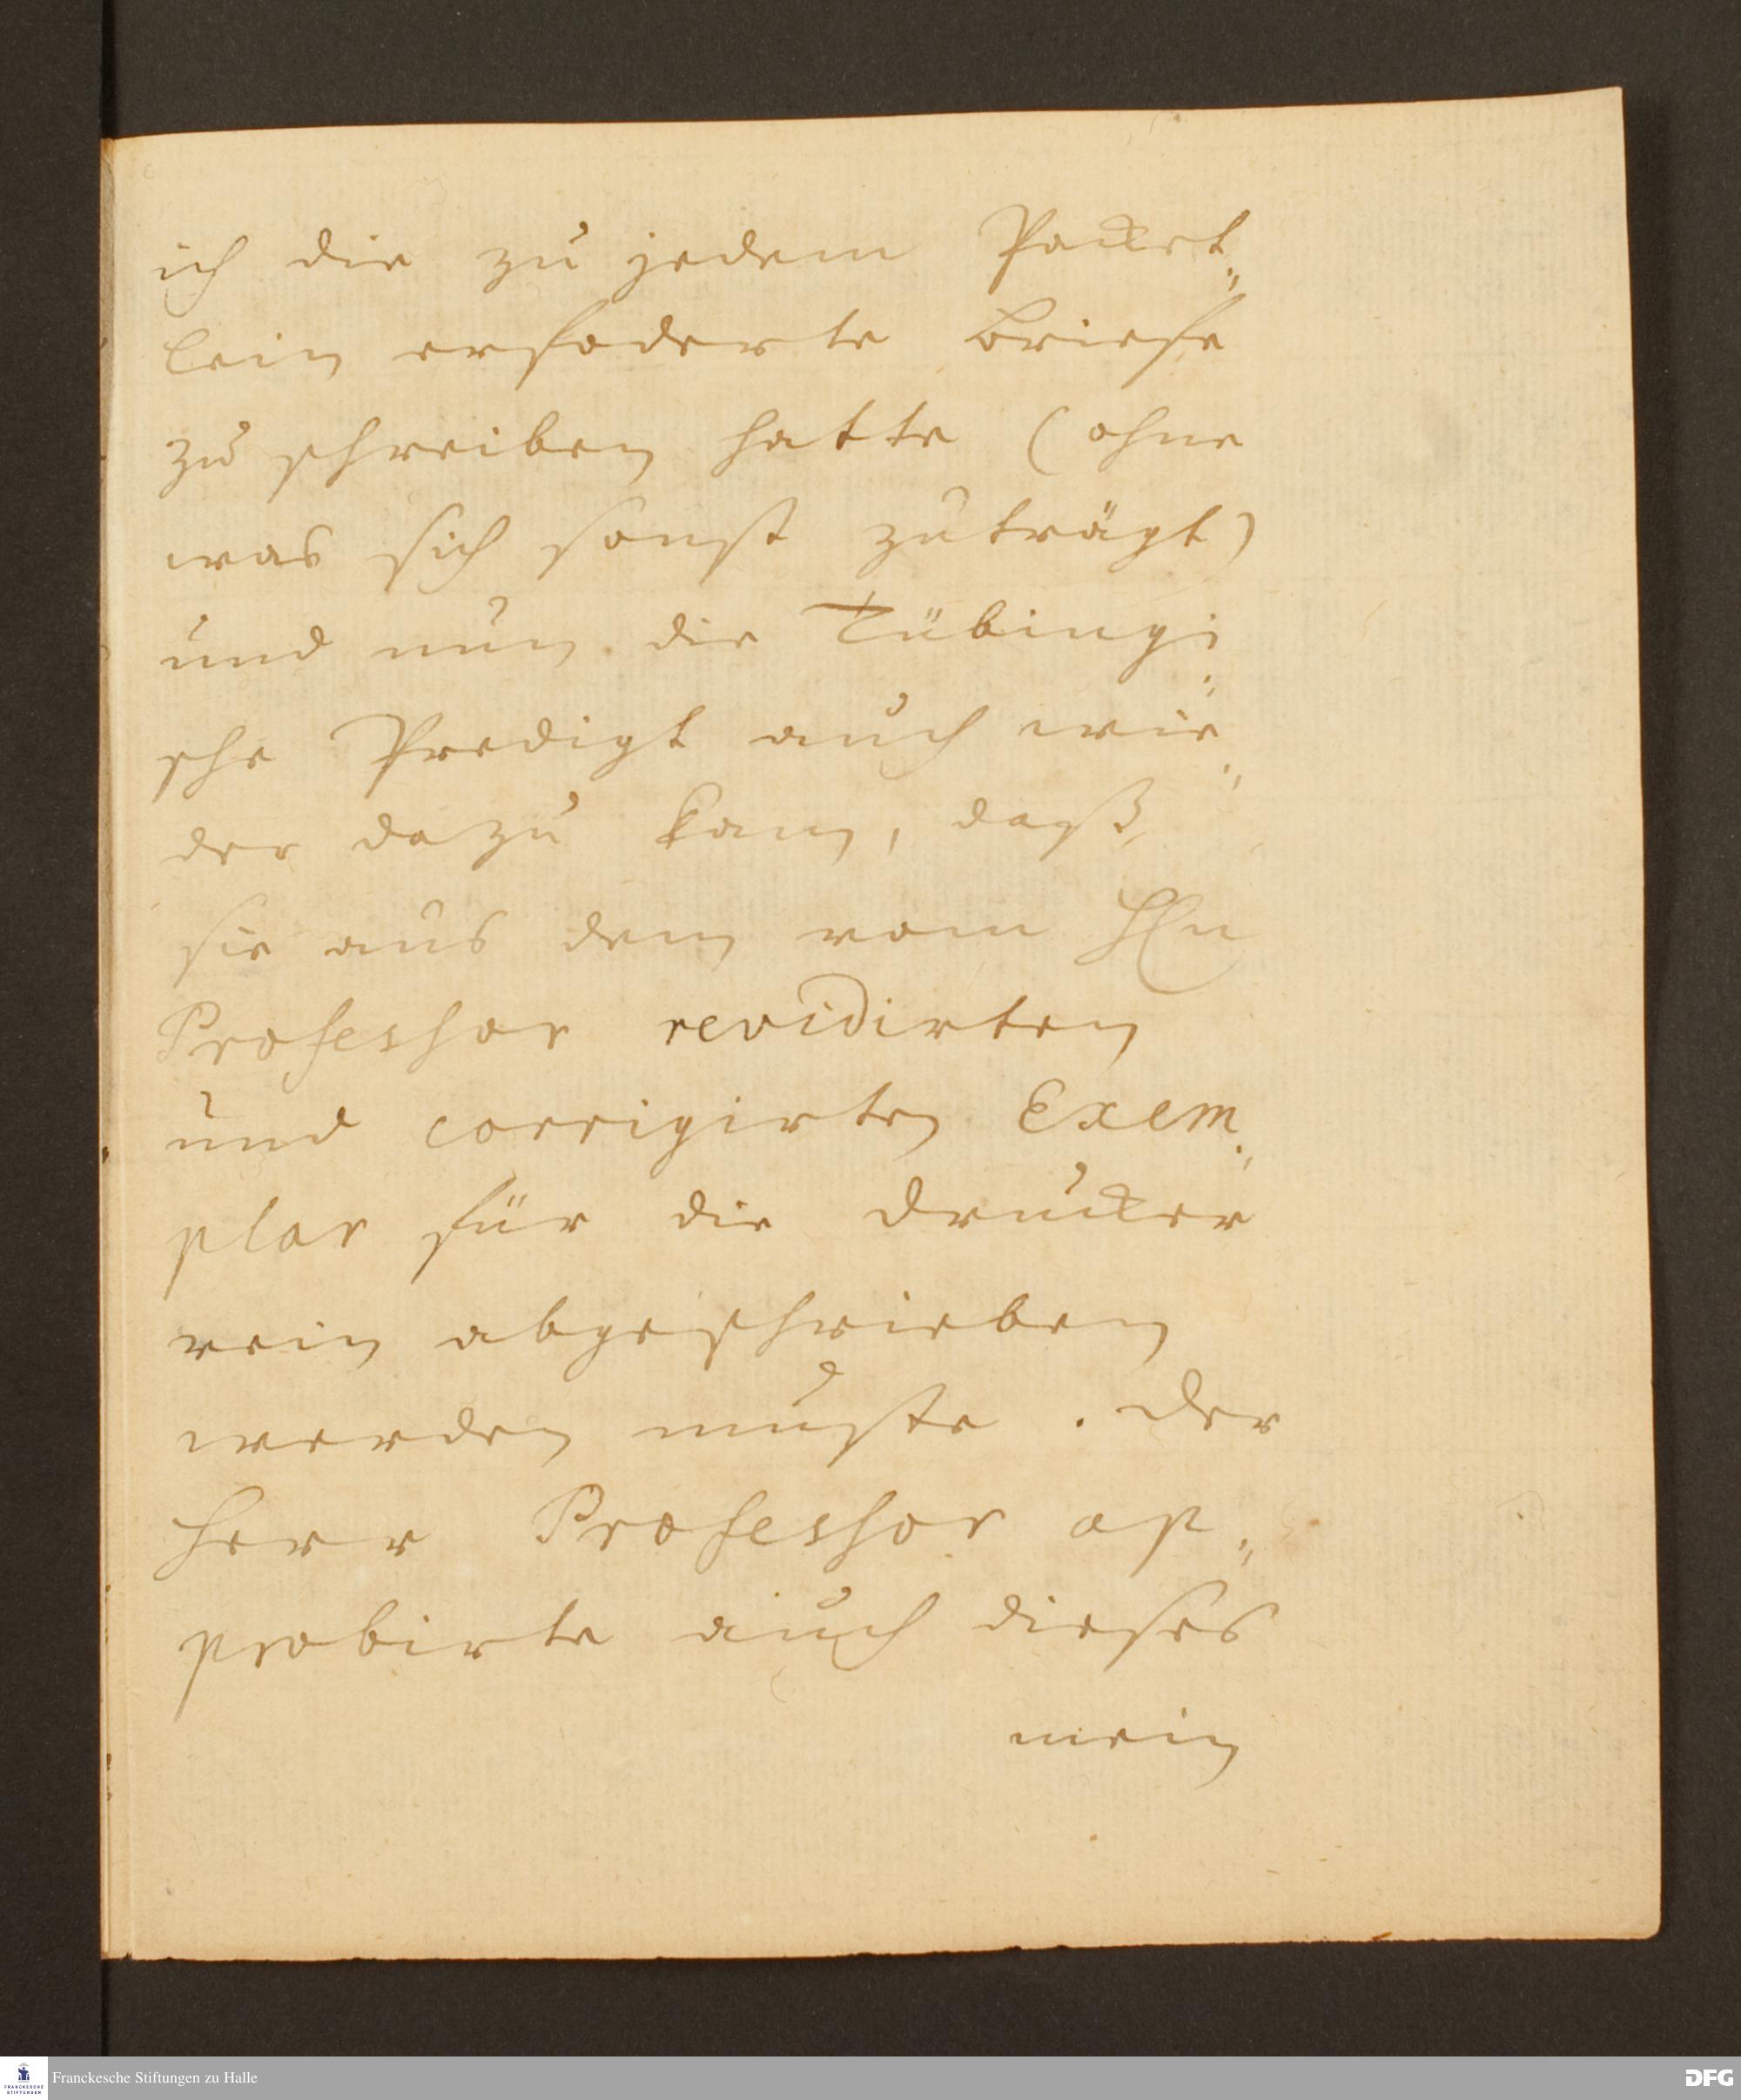 ich die zu jedem Packet„
lein erfoderte Briefe
zu schreiben hatte (ohne
was sich sonst zuträgt)
und nun die Tübingi„
sche Predigt auch wie„
der dazu kam, daß
sie aus dem vom HEn
Professor revidirten
und corrigirten Exem„
plar für die Drucker
rein abgeschrieben
werden muste. Der
Herr Professor ap„
probirte auch dieses
mein
FRANCKESCHE STIFTUNGEN
Franckesche Stiftungen zu Halle
DFG